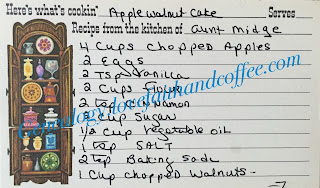 Here's what's cookin' Apple walnut Cake Serves
Recipe from the kitchen of Aunt Midge
4 Cups Chopped Apples
2 Eggs
2 Tsp Vanilla
2 Cups Flour
2 tsp Cinnamon
Cup Sugar
1/2 Cup Vegetable oil
1 tsp SALT
2 tsp Baking Soda
1 Cup chopped Walnuts
Genealogy.lovefaithandcoffee.com